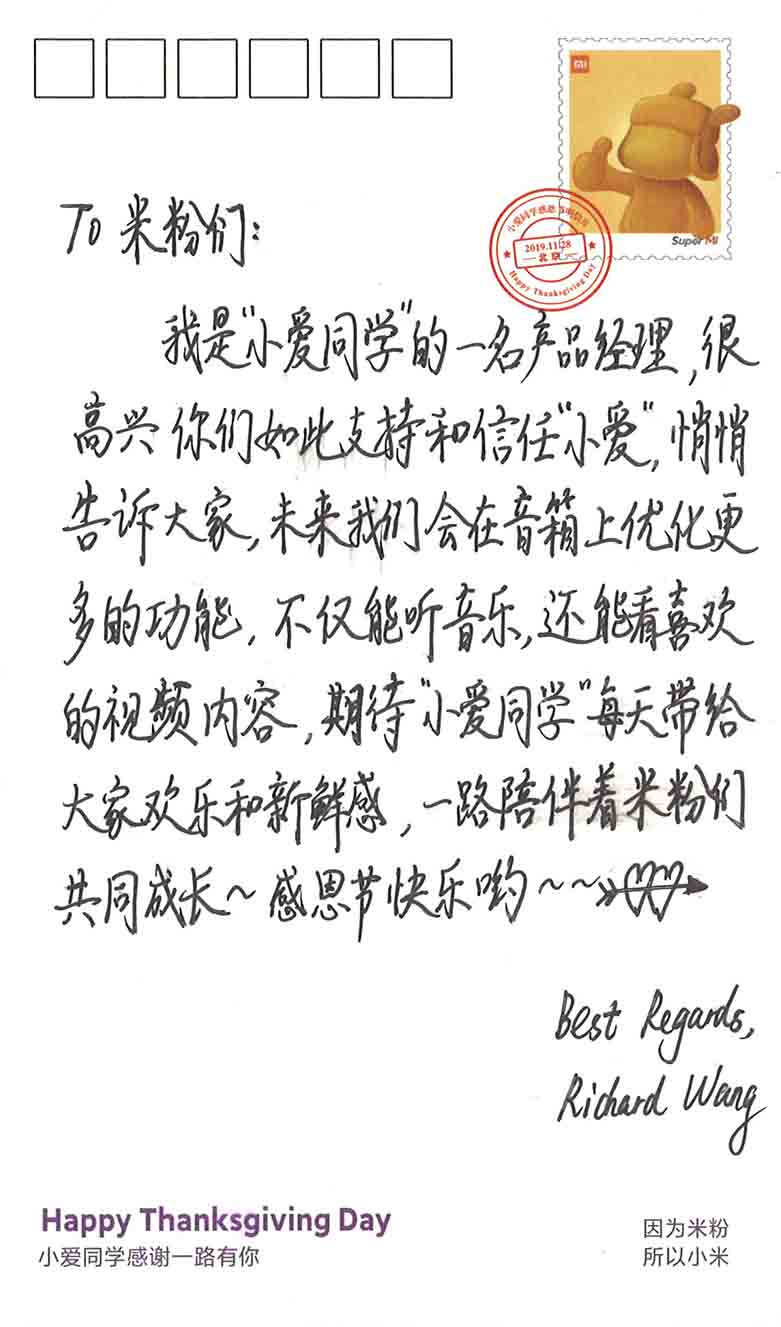 MI
Super MI
小爱同学感恩节明信片
2019.11.28
北京
Happy Thanksgiving Day
To 米粉们:
我是"小爱同学"的一名产品经理,很
高兴你们如此支持和信任"小爱",悄悄
告诉大家,未来我们会在音箱上优化更
多的功能,不仅能听音乐,还能看喜欢
的视频内容,期待"小爱同学"每天带给
大家欢乐和新鲜感,一路陪伴着米粉们
共同成长~感恩节快乐哟~~
Best Regards,
Richard Wang
Happy Thanksgiving Day
小爱同学感谢一路有你
因为米粉
所以小米